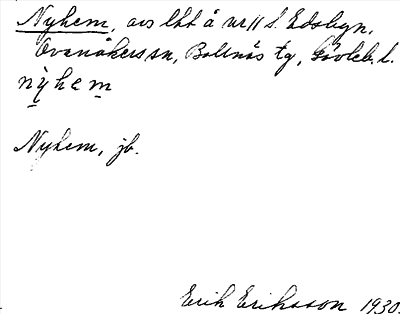 Nyhem, avs lht å nr 11 s. Edsbyn,
Ovanåkers sn, Bollnäs tg, Gävleb. l.
nỳhem
Nyhem, jb.
Erik Eriksson 1930.